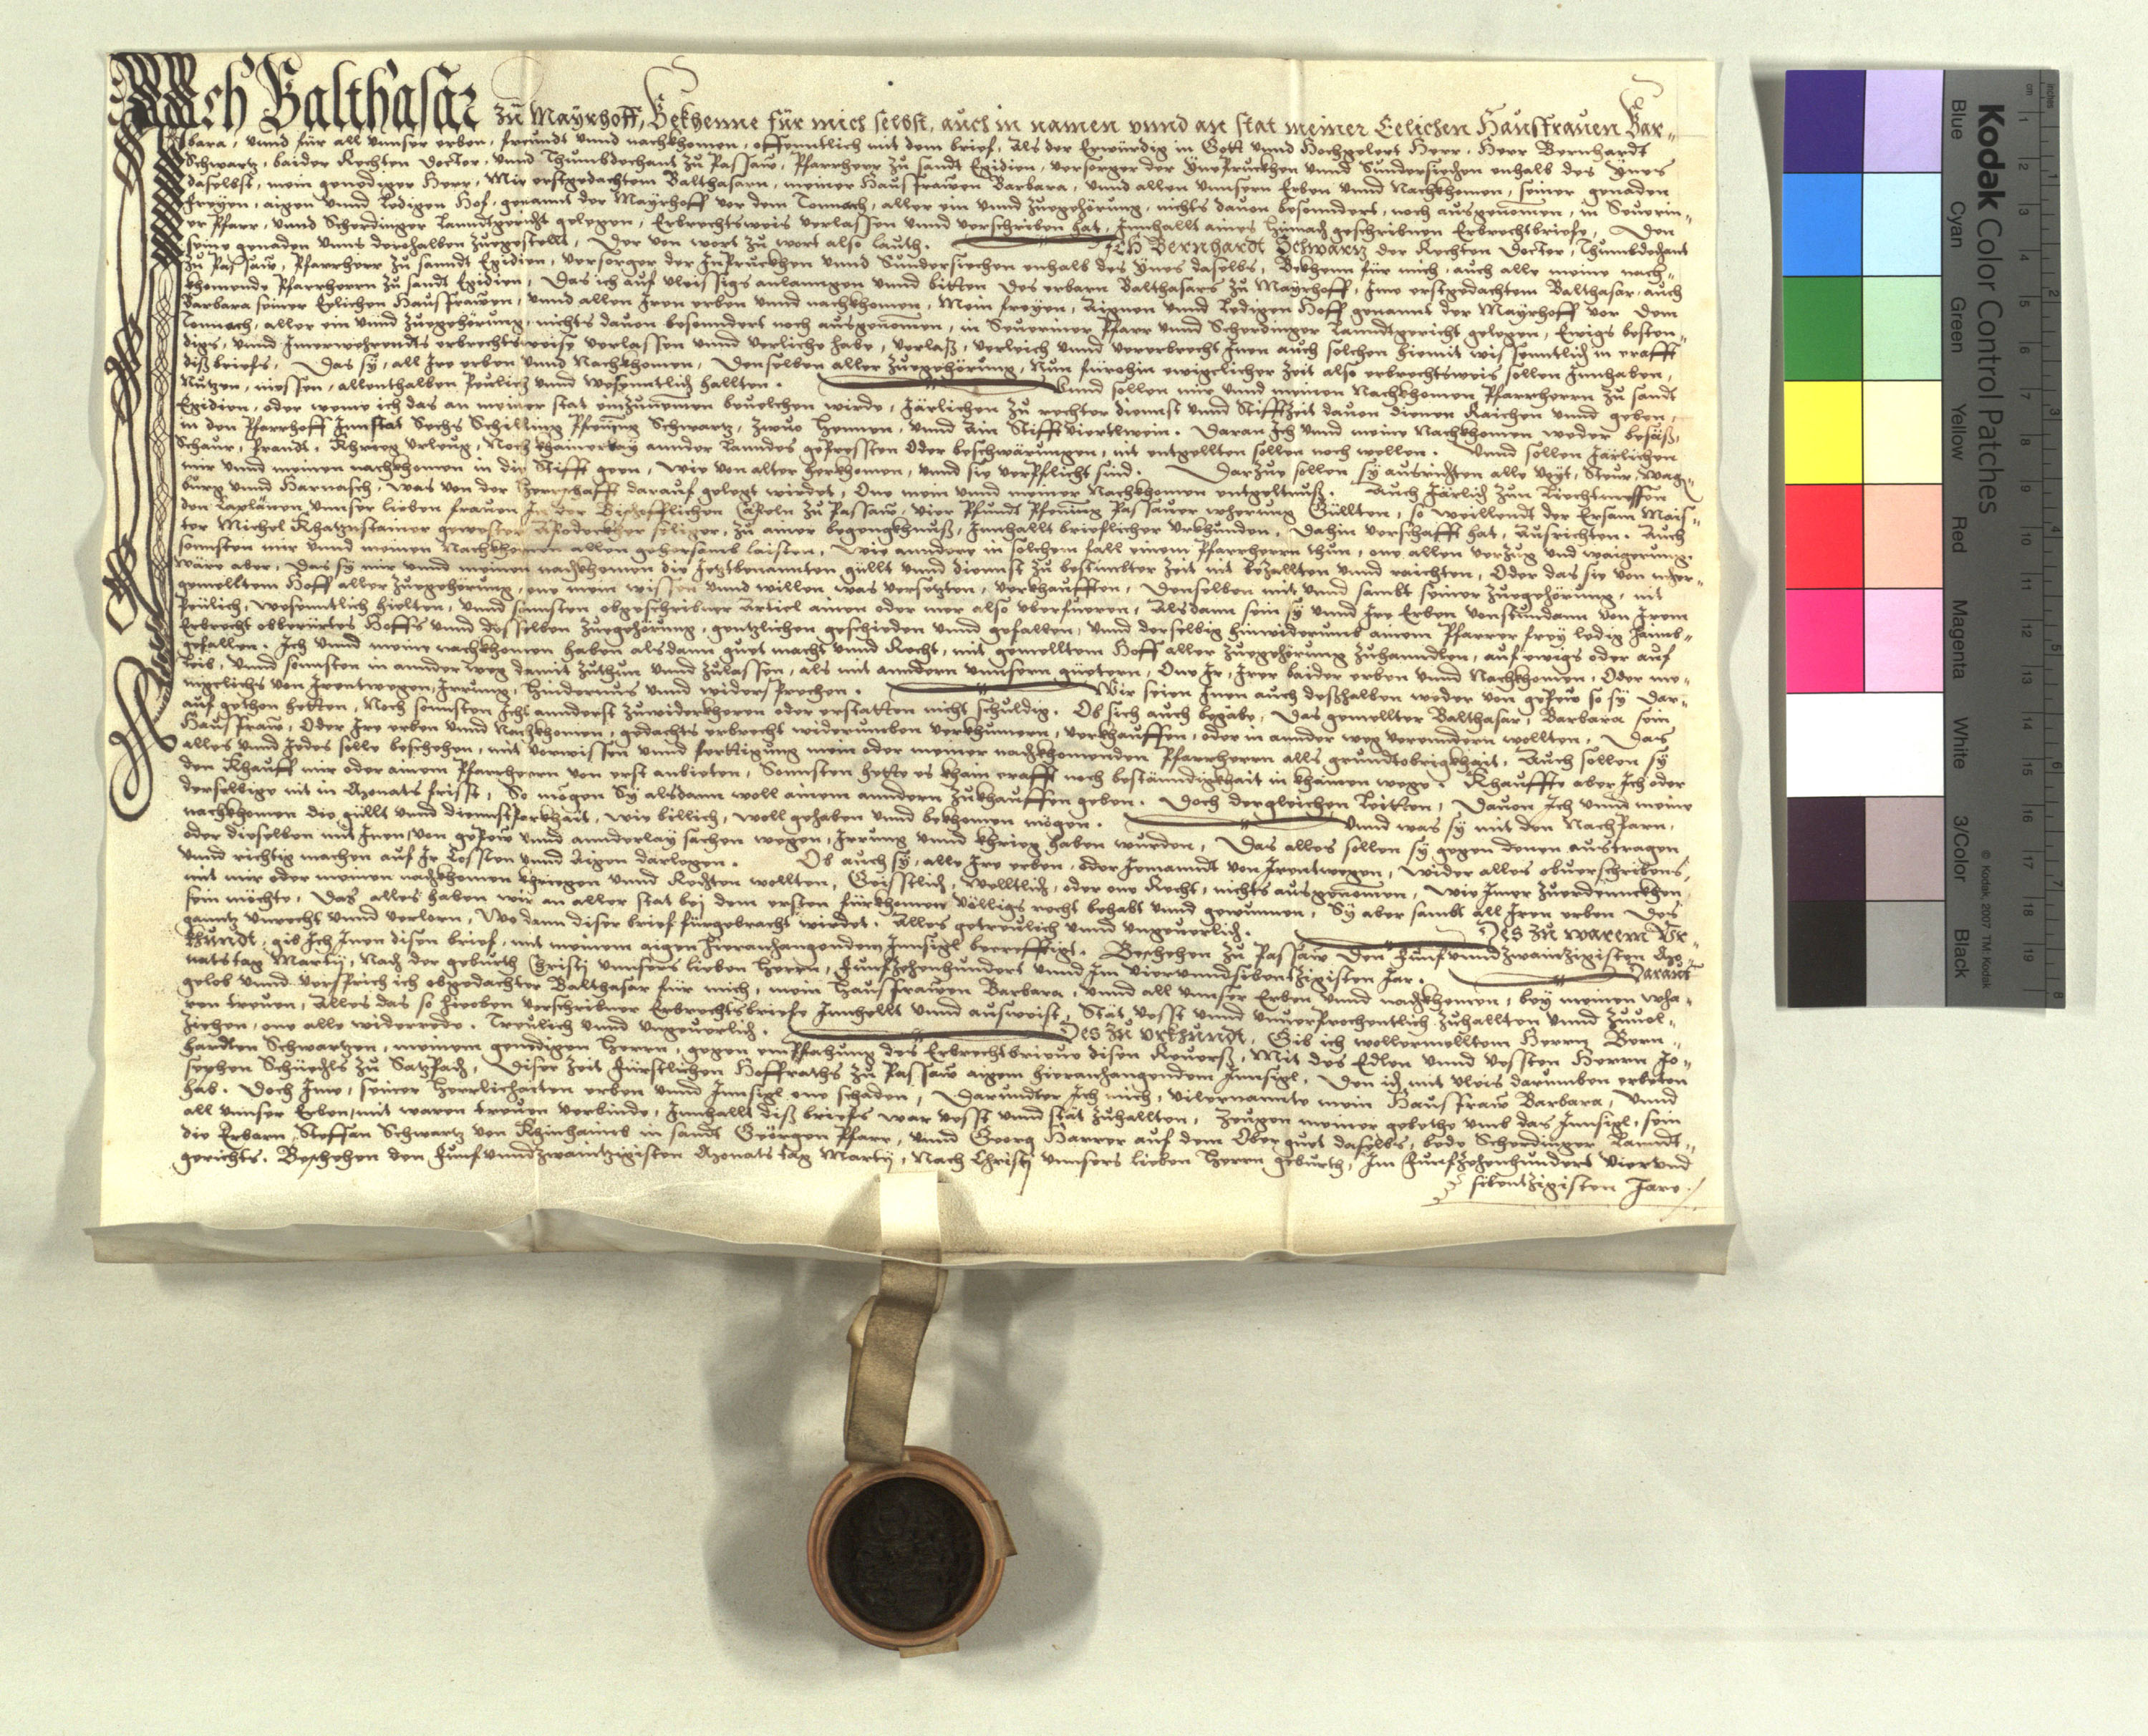 Ich Balthasar zu Mayrhoff, Bekhenne für mich selbst, auch in namen vnnd an stat meiner Eelichen Hausfrauen Bar-
bara, vnnd für all vnnser erben, freundt vnnd nachkhomen, offenntlich mit dem brief, Als der Erwürdig in Gott vnnd Hochgelert Herr, Herr Bernhardt
Schwartz, baider Rechten Doctor, vnnd Thumbdechant zu Passaw, Pfarrherr zu sandt Egidien, versorger der Ynprucken vnnd Sundersiechen enhalb des Ynns
daselbst, mein genediger Herr, Mir erstgedachtem Balthasarn, meiner Hausfrauen Barbara, vnnd allen vnnsern Erben vnnd Nachkhomen, seiner genaden
freyen, aigen vnnd ledigen Hof, genannt der Mayrhoff vor dem Tonnach, aller ein vnnd zuegehörung, nichts dauon besonndert, noch ausgenomen, in Seuerin-
er Pfarr, vnnd Scherdinger Lanndtgericht gelegen, Erbrechtsweis verlassen vnnd verschriben hat, Innhallt aines hernach geschribnen Erbrechtbriefs, Den
seine genaden vnns derohalben zuegestellt, Der von wort zu wort also lauth. Ich Bernhardt Schwartz der Rechten Doctor, Thumbdechant
zu Passaw, Pfarrherr zu sanndt Egidien, versorger der Inprucken vnnd Sundersiechen enhalb des Ynns daselbs, Bekhenn für mich, auch alle meine nach-
khomende Pfarrherrn zu sandt Egidien, Das ich auf vleissigs anlanngen vnnd bitten des erbarn Balthasars zu Mayrhoff, Ime erstgedachtem Balthasar, auch
Barbara seiner Eelichen Hausfrauen, vnnd allen Iren erben vnnd nachkhomen, Mein freyen, Aignen vnnd Ledigen Hoff genannt der Mayrhoff vor dem
Tonnach, aller ein vnnd zuegehörung, nichts dauon besonndert noch ausgenomen, in Seueriner Pfarr vnnd Scherdinger Lanndtgericht gelegen, Ewigs besten-
digs, vnnd Imerwehrendts erbrechtsweise verlassen vnnd verlichen habe, verlaß, verleich vnnd vererbrecht Inen auch solchen hiemit wissenntlich in crafft
diß briefs, Das sy, all Ire erben vnnd Nachkhomen, Denselben aller zuegehörung, Nun fürohin ewigclicher zeit also erbrechtsweis sollen Innhaben,
Nutzen, niessen, allenthalben Peulich vnnd wesenntlich hallten. Vnnd sollen mir vnnd meinen Nachkhomen Pfarrherrn zu sandt
Egidien, oder weme ich das an meiner stat einzunemen beuelchen würde, Järlichen zu rechter diennst vnnd Stifftzeit dauon dienen Raichen vnnd geben,
in den Pfarrhoff Innstat Sechs Schilling Pfening Schwartz, zwuo Hennen, vnnd Ain Stifft viertlwein. Daran Ich vnnd meine Nachkhomen weder besäß,
Schaur, Prandt, Khrieg vrleug, Noch khainerlay annder Lanndes gepressten Oder beschwärungen, nit entgellten sollen noch wellen. Vnnd sollen Järlichen
mir vnnd meinen nachkhomen in die Stifft geen, wie von alter herkhomen, vnnd sie verpflicht sind. Darzue sollen sy ausrichten alle Voyt, Steur, wag-
burg vnnd Harnasch, was von der Herrschafft darauf gelegt wirdet, One mein vnnd meiner Nachkhomen entgeltnuß. Auch Järlich zun Liechtmessen
den Caplänen vnnser lieben frauen In der Bischofflichen Capeln zu Passaw, vier Pfundt Pfening Passauer weherung Güllten, so weillendt der Ersam Mais-
ter Michel Khatznstainer gewester Apodeckher seliger, zu ainer begengkhnuß, Innhallt brieflicher vrkhunden, Dahin verschafft hat, Ausrichten. Auch
sonnsten mir vnnd meinen Nachkhomen allen gehorsamb laisten, Wie anndere in solchem fall einem Pfarrherrn thun, one allen verzug vnd waigerung.
Wäre aber, Das sy mir vnnd meinen nachkhomen die Jetztbenannten güllt vnnd diennst zu bestimbter zeit nit bezallten vnnd raichten, Oder das sie von mer-
gemelltem Hoff aller zuegehörung, one mein wissen vnnd willen, was versetzten, verkhaufften, Denselben mit vnnd sambt seiner zuegehörung, nit
Peulich, wesenntlich hielten, vnnd sonnsten obgeschribner Articl ainen oder mer also vberfueren, Alsdann sein sy vnnd Ire Erben vonstundann von Irem
Erbrecht obberürtes Hoffs vnnd desselben zuegehörung, genntzlichen geschieden vnnd gefallen, vnnd derselbig hinwiderumb ainem Pfarrer frey ledig haimb-
gefallen. Ich vnnd meine nachkhomen haben alsdann guet macht vnnd Recht, mit gemelltem Hoff aller zuegehörung zuhanndlen, auf ewigs oder auf
leib, vnnd sonnsten in annder weg damit zuthun vnnd zulassen, als mit anndern vnnsern güetern, One Ir, Irer baider erben vnnd Nachkhomen, Oder me-
nigclichs von Irentwegen, Irrung, hindernus vnnd widersprechen. Wir seien Inen auch deßhalben weder von gepew so sy dar-
auf gethon hetten, Noch sonnsten Ichs annderst zuwiderkheren oder erstatten nicht schuldig. Ob sich auch begabe, Das gemellter Balthasar, Barbara sein
Hausfraw, Oder Ire erben vnnd Nachkhomen, gedachts erbrecht widerumben verkhumern, verkhauffen, oder in annder weg verenndern wollten, Das
alles vnnd Jedes solle beschehen, mit vorwissen vnnd fertigung mein oder meiner nachkhomenden Pfarrherrn alls grundtobrigkhait, Auch sollen sy
den Khauff mir oder ainem Pfarrherrn von erst anbieten, Sonnsten hette es khain crafft noch bestänndigkhait in khainen wege. Khauffte aber Ich oder
derselbige nit in Monats frisst, So mögen Sy alsdann woll ainem anndern zukhauffen geben. Doch dergleichen Leitten, Dauon Ich vnnd meine
nachkhomen die güllt vnnd diennstperkhait, wie billich, woll gehaben vnnd bekhomen mögen. Vnnd was sy mit den Nachparn,
oder dieselben mit Inen, von gepew vnnd annderlay sachen wegen, Irrung vnnd khrieg haben wurden, Das alles sollen sy gegen denen austragen
vnnd richtig machen auf Ir Cossten vnnd Aigen darlegen. Ob auch sy, alle Ire erben, oder Jemanndt von Irentwegen, wider alles obuerschribens,
mit mir oder meinen nachkhomen khriegen vnnd Rechten wollten, Geisstlich, welltlich, oder one Recht, nichts ausgenomen, wie Imer zuerdennckhen
sein möchte, Das alles haben wir an aller stat bej dem ersten fürkhomen völligs recht behabt vnnd gewunnen, Sy aber sambt all Iren erben des
ganntz vnrecht vnnd verlorn, Wo dann diser brief fürgebracht wirdet. Alles getreulich vnnd vngeuerlich. Des zu warem Vr-
khundt, gib Ich Inen disen brief, mit meinem aigen hieranhangendem Innsigl becrefftigt. Beschehen zu Passaw den Fünfvnndzwainzigisten Mo-
natstag Martij, Nach der geburth Christj vnnsers lieben Herrn, Funfzehenhundert vnnd Im viervnndsibentzigisten Jar. Darauf
gelob vnnd versprich ich obgedachter Balthasar für mich, mein Hausfrauen Barbara, vnnd all vnnser Erben vnnd nachkhomen, bey meinen wha-
ren treuen, Alles das so hieoben verschribner Erbrechtsbriefe Innhellt vnnd ausweist, Stät, vesst vnnd vnuerprochentlich zuhallten vnnd zuuol-
ziehen, one alle widerrede. Treulich vnnd vngeuerlich. Des zu vrkhundt, Gib ich wollermelltem Herrn Bern-
hardten Schwartzen, meinem genedigen Herrn, gegen empfahung des Erbrechtbrieue disen Reuerß, Mit des Edlen vnnd vessten Herrn Jo-
sephen Schüechls zu Satzpach, Diser zeit fürstlichen Hoffraths zu Passaw aigem hieranhangendem Innsigl, Den ich mit vleis darumben erbeten
hab. Doch Ime, seiner Herrlichaiten erben vnnd Innsigl one schaden, Darundter Ich mich, vilernannte mein Hausfraw Barbara, vnnd
all vnnser Erben, mit waren treuen verbinde, Innhallt diß briefs war vesst vnnd stät zuhallten, Zeugen meiner gebethe vmb das Innsigl, sein
die Erbarn, Steffan Schwartz von Khinhaimb in sandt Geörgen Pfarr, vnnd Georg Harrer auf dem Obern guet daselbs, bede Scherdinger Lanndt-
gerichts. Beschehen den Funfvnndzwaintzigisten Monats tag Martij, Nach Christj vnnsers lieben Herrn geburth, Im Funfzehenhundert viervnd
sibentzigisten Jare.
Kodak Color Control Patches
Blue Cyan Green Yellow Red Magenta White 3/Color Black
© Kodak, 2007 TM: Kodak
inches 1 2 3 4 5 6 7 8
cm 1 2 3 4 5 6 7 8 9 10 11 12 13 14 15 16 17 18 19